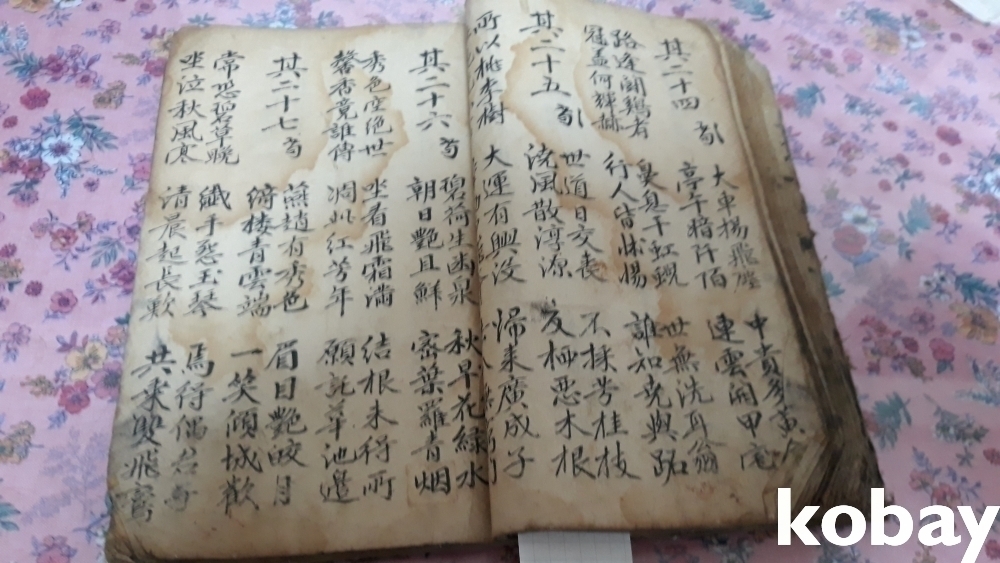 其二十四
大車揚飛塵
中貴多黃金
亭午暗阡佰
連雲開甲宅
路逢鬪鷄者
鼻息干虹蜺
世無洗耳翁
冠盖何輝赫
行人皆怵惕
誰知堯與跖
其二十五
世道日交喪
不採芳桂枝
澆風散淳源
反栖惡木根
所以桃李樹
大運有興沒
歸来廣成子
其二十六
碧荷生幽泉
秋早花綠水
朝日艷且鮮
密葉羅青烟
秀色空絕世
坐看飛霜滿
結根未得所
馨香竟誰傳
凋此紅芳年
願託華池邊
其二十七
燕趙有秀色
眉目艷皎月
綺楼青雲端
一笑傾城歡
常恐碧草晚
纖手怨玉琴
焉得偶君子
坐泣秋風寒
清晨起長歎
共乘雙飛鸞
kobay